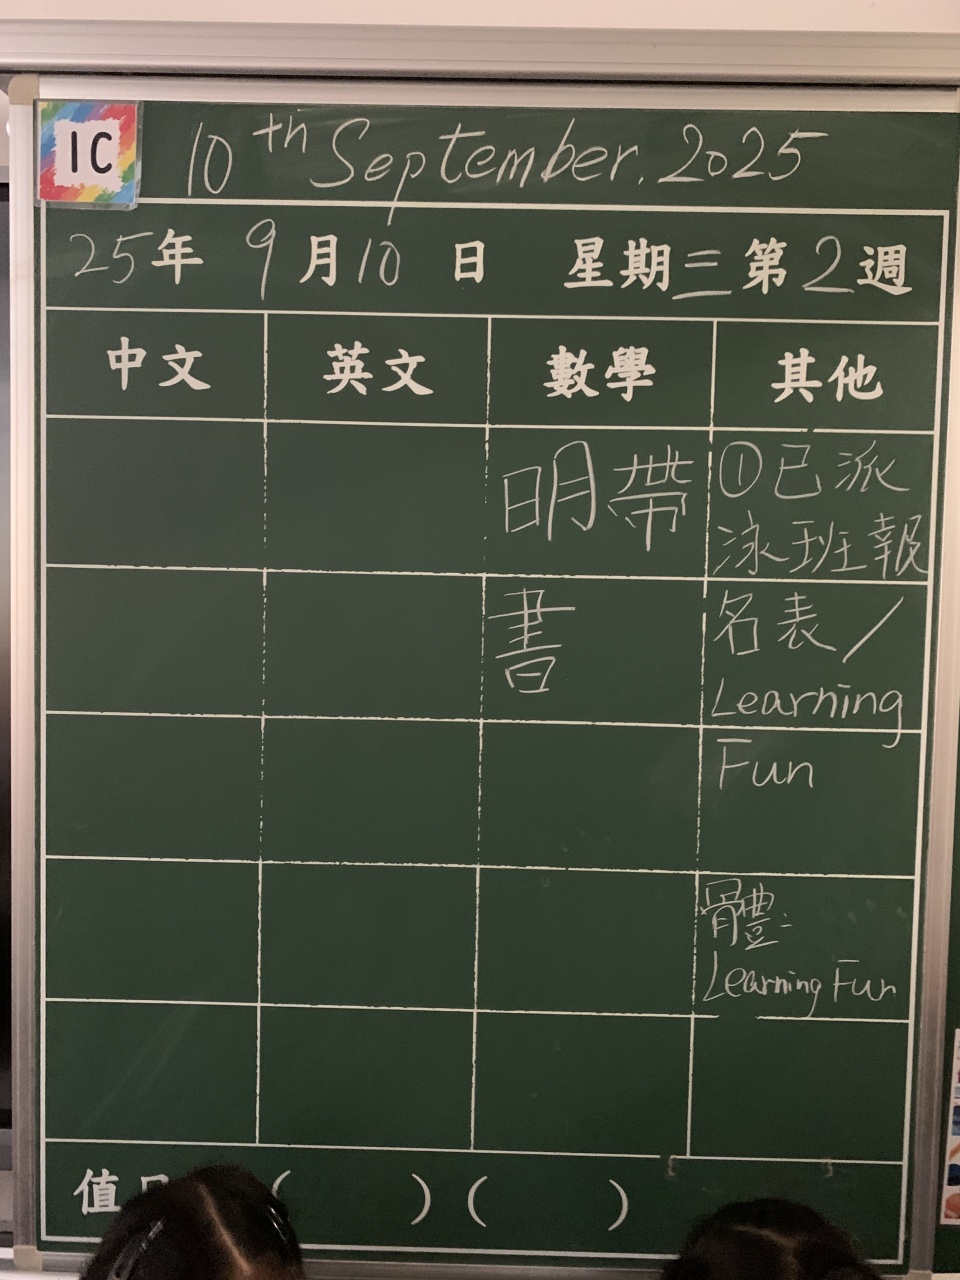 1C
10th September. 2025
25年 9月10日 星期三第2週
中文 英文 數學 其他
明帶
書
①已派
泳班報
名表／
Learning
Fun
體:
Learning Fun
值日 ( ) ( )